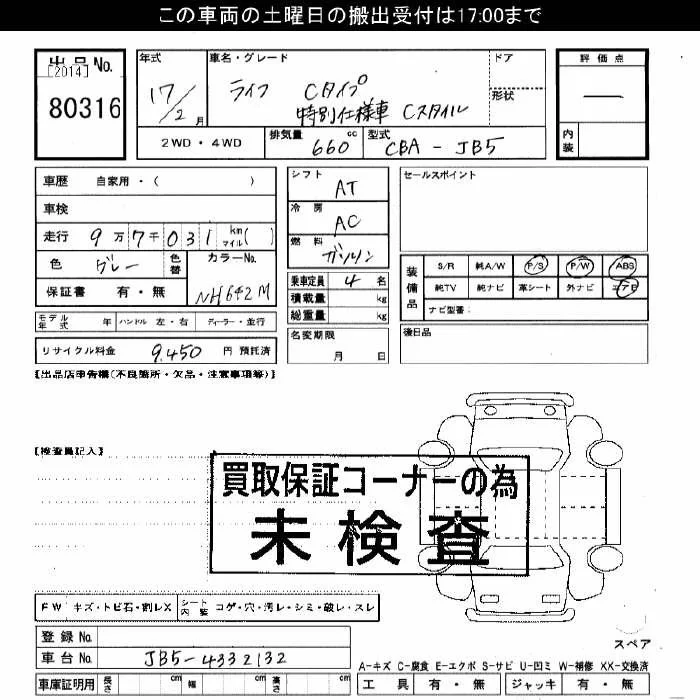 この車両の土曜日の搬出受付は17:00まで
出品No.
[2014]
80316
年式
17/2月
車名・グレード
ライフ Cタイプ
特別仕様車 Cスタイル
ドア
形状
評価点
内装
2WD・4WD
排気量 660 cc
型式 CBA-JB5
車歴 自家用・( )
車検
走行 9万7千031 km マイル( )
色 グレー 色替
カラーNo.
NH642M
保証書 有・無
シフト
AT
冷房
AC
燃料
ガソリン
乗車定員 4名
積載量 kg
総重量 kg
セールスポイント
装備品
S/R 純A/W P/S P/W ABS
純TV 純ナビ 革シート 外ナビ エアB
ナビ型番:
モデル年式 年 ハンドル 左・右 ディーラー・並行
名変期限
月 日
後日品
リサイクル料金 9,450 円 預託済
【出品店申告欄(不良箇所・欠品・注意事項等)】
【検査員記入】
買取保証コーナーの為
未検査
FW キズ・トビ石・割レX
シート内装 コゲ・穴・汚レ・シミ・破レ・スレ
登録No.
車台No. JB5-4332132
スペア
A-キズ C-腐食 E-エクボ S-サビ U-凹ミ W-補修 XX-交換済
車庫証明用 長さ cm 幅 cm 高さ cm
工具 有・無 ジャッキ 有・無